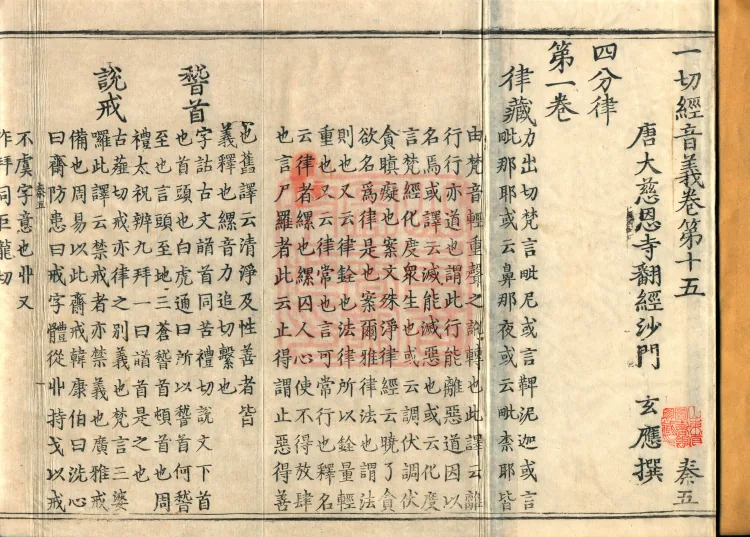 一切經音義卷第十五 秦五
唐大慈恩寺翻經沙門 玄應撰
四分律
第一卷
律藏
力出切梵言毗尼或言鞞泥迦或言
毗那耶或云鼻那夜或云毗柰耶皆
由梵音輕重聲之訛轉也此譯云離
行行亦道也謂此行能離惡道因以
名焉或譯云滅能滅惡也或云化度
言梵經化度衆生也或云調伏調伏
貪瞋癡也案文殊淨律經云曉了貪
欲名爲律是也案爾雅律法也謂法
則也又云律銓也法律所以銓量輕
重也又云律常也言可常行也釋名
云律者縲也縲囚人心使不得放肆
也言尸羅者此云止得謂止惡得善
也舊譯云清淨及性善者皆
義釋也縲音力追切繫也
䭫首
字詁古文䭫首同苦禮切說文下首
也首頭也白虎通曰所以䭫首何䭫
至也言頭至地三蒼䭫首頓首也周
禮太祝辨九拜一曰䭫首是之也
說戒
古薤切戒亦律之別義也梵言三婆
囉此譯云禁戒者亦禁義也廣雅戒
備也周易以此齋戒韓康伯曰洗心
曰齋防患曰戒字體從廾持戈以戒
不虞字意也廾又
秦五
作拜同巨龍切